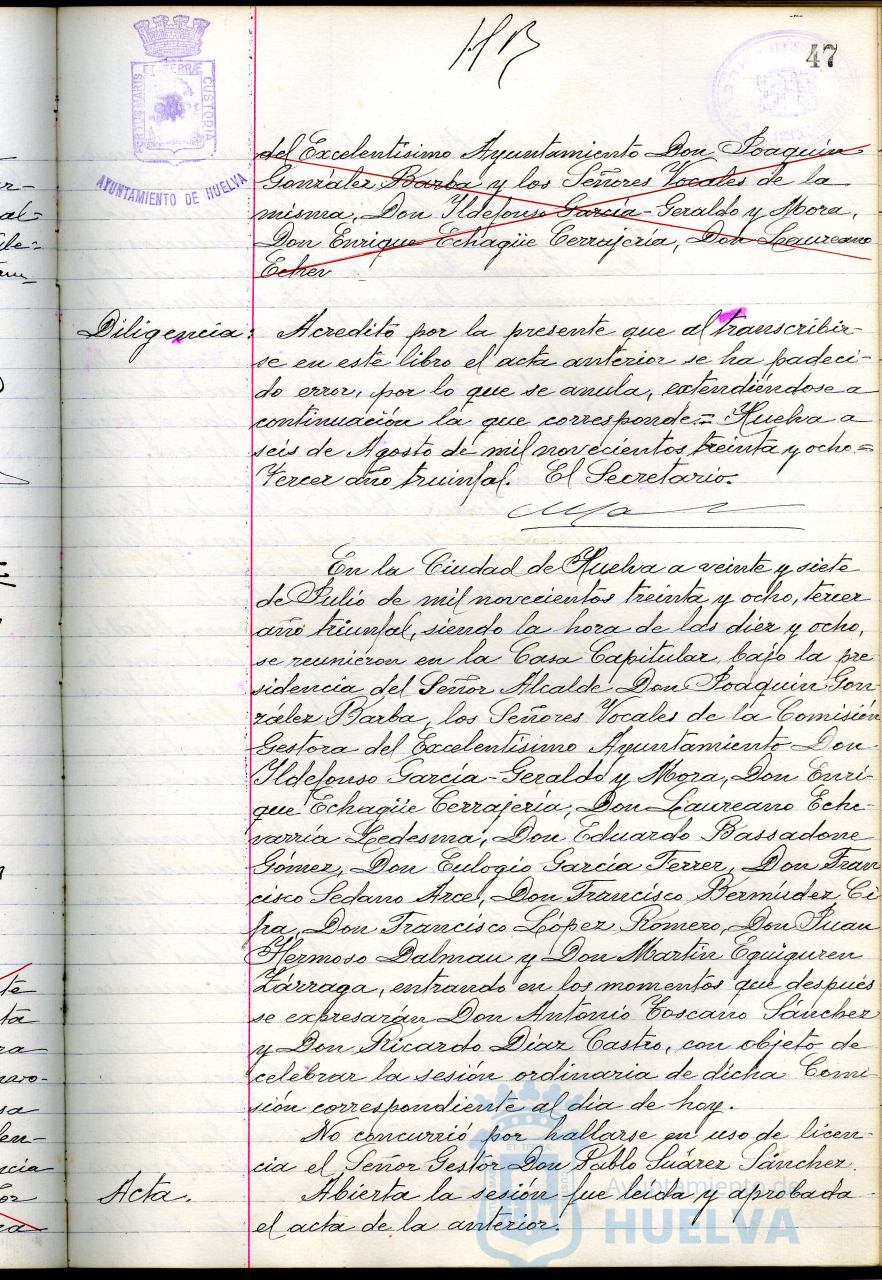 47
PORTUS MARIS ET TERRÆ CUSTODIA
AYUNTAMIENTO DE HUELVA
del Excelentísimo Ayuntamiento Don Joaquín
González Barba y los Señores Vocales de la
misma, Don Ildefonso García-Geraldo y Mora,
Don Enrique Echagüe Cerrajería, Don Laureano
Echev
Diligencia: Acredito por la presente que al transcribir-
se en este libro el acta anterior se ha padeci-
do error, por lo que se anula, extendiéndose a
continuación la que corresponde = Huelva a
seis de Agosto de mil novecientos treinta y ocho =
Tercer año triunfal. El Secretario.
En la Ciudad de Huelva a veinte y siete
de Julio de mil novecientos treinta y ocho, tercer
año triunfal, siendo la hora de las diez y ocho,
se reunieron en la Casa Capitular, bajo la pre
sidencia del Señor Alcalde Don Joaquín Gon-
zález Barba, los Señores Vocales de la Comisión
Gestora del Excelentísimo Ayuntamiento Don
Ildefonso García-Geraldo y Mora, Don Enri-
que Echagüe Cerrajería, Don Laureano Eche-
varría Ledesma, Don Eduardo Bassadone
Gómez, Don Eulogio García Ferrer, Don Fran
cisco Sedano Arce, Don Francisco Bermúdez Ci
fra, Don Francisco López Romero, Don Juan
Hermoso Dalmau y Don Martín Eguiguren
Zárraga, entrando en los momentos que después
se expresarán Don Antonio Toscano Sánchez
y Don Ricardo Díaz Castro, con objeto de
celebrar la sesión ordinaria de dicha Comi
sión correspondiente al día de hoy.
No concurrió por hallarse en uso de licen-
cia el Señor Gestor Don Pablo Suárez Sánchez.
Acta. Abierta la sesión fue leída y aprobada
el acta de la anterior.
Ayuntamiento de
HUELVA